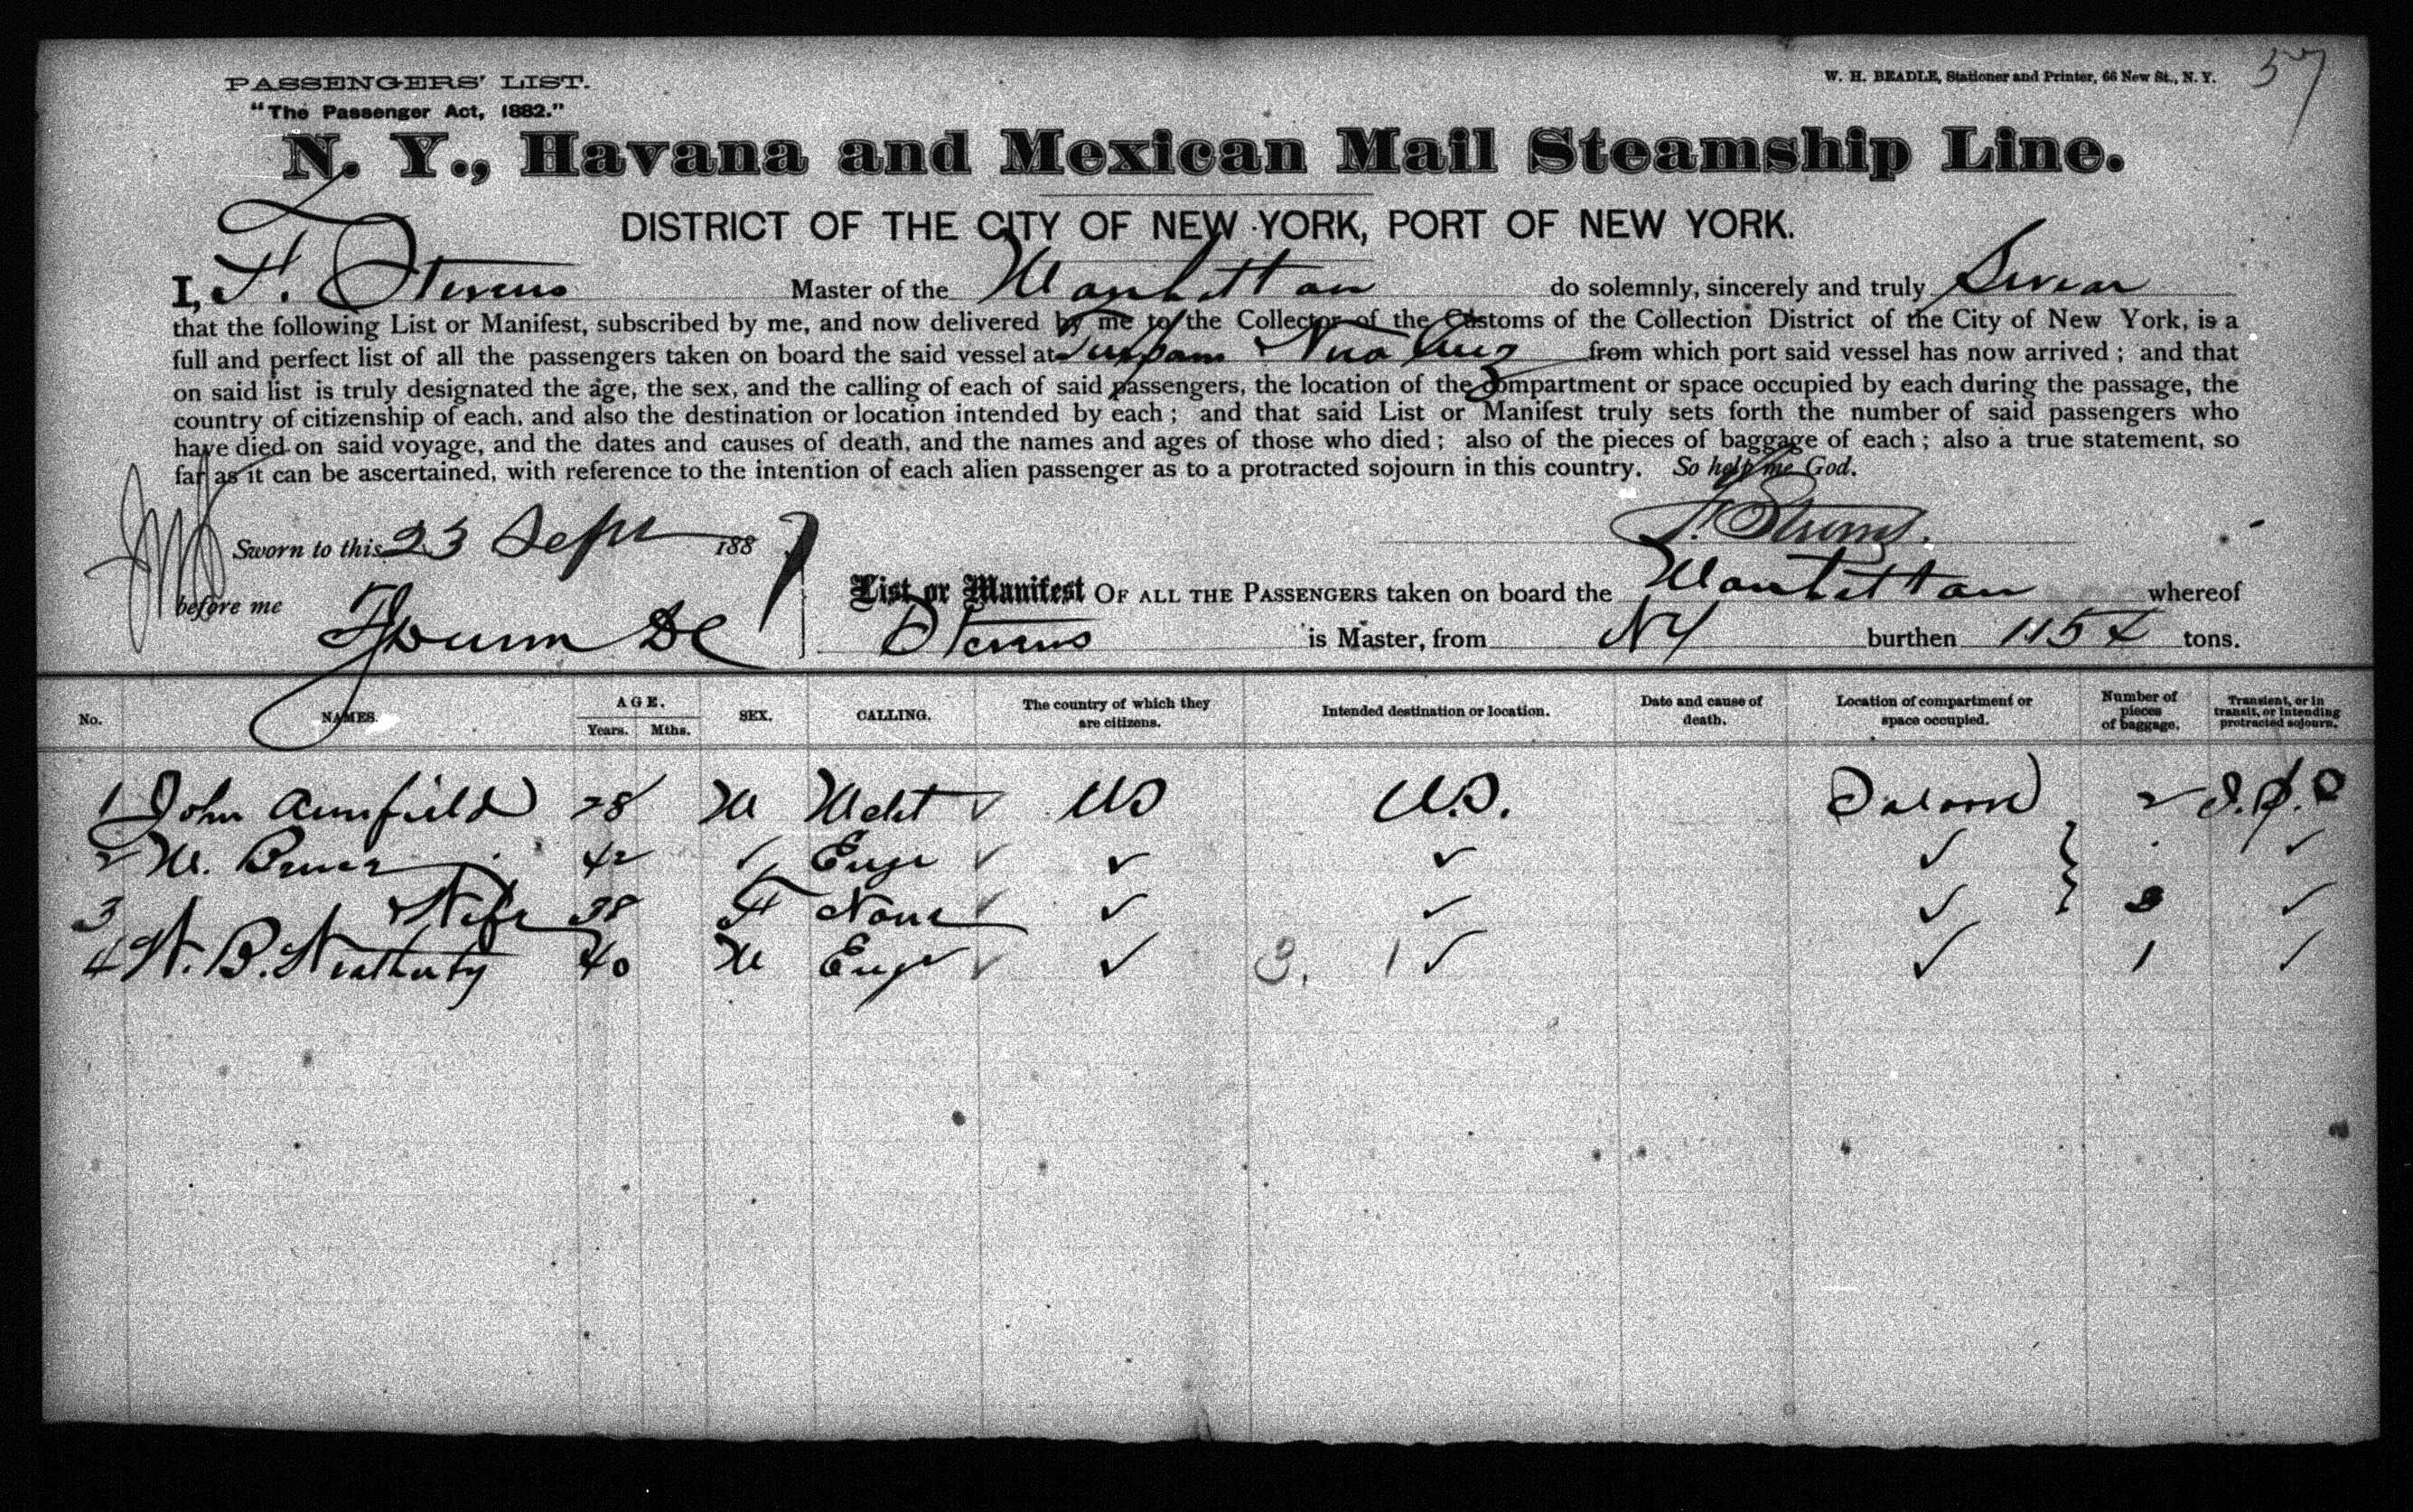 57
PASSENGERS' LIST.
W. H. BEADLE, Stationer and Printer, 66 New St., N. Y.
"The Passenger Act, 1882."
N. Y., Havana and Mexican Mail Steamship Line.
DISTRICT OF THE CITY OF NEW YORK, PORT OF NEW YORK.
I, F. Stevens Master of the Manhattan do solemnly, sincerely and truly Swear
that the following List or Manifest, subscribed by me, and now delivered by me to the Collector of the Customs of the Collection District of the City of New York, is a
full and perfect list of all the passengers taken on board the said vessel at from which port said vessel has now arrived; and that
on said list is truly designated the age, the sex, and the calling of each of said passengers, the location of the compartment or space occupied by each during the passage, the
country of citizenship of each, and also the destination or location intended by each; and that said List or Manifest truly sets forth the number of said passengers who
have died on said voyage, and the dates and causes of death, and the names and ages of those who died; also of the pieces of baggage of each; also a true statement, so
far as it can be ascertained, with reference to the intention of each alien passenger as to a protracted sojourn in this country. So help me God.
F. Stevens.
Sworn to this 23 Sept 1887
before me
List or Manifest OF ALL THE PASSENGERS taken on board the Manhattan whereof
Stevens is Master, from NY burthen 1154 tons.
No. NAMES. AGE. Years. Mths. SEX. CALLING. The country of which they are citizens. Intended destination or location. Date and cause of death. Location of compartment or space occupied. Number of pieces of baggage. Transient, or in transit, or intending protracted sojourn.
1 John 28 M Mcht US U.S. Saloon 2
2 M. 42 ✓ Engr ✓ ✓ ✓ ✓
3 " Wife 38 F None ✓ ✓ ✓ ✓
4 W. B. 40 M Engr ✓ 3. 1 ✓ ✓ 1 ✓